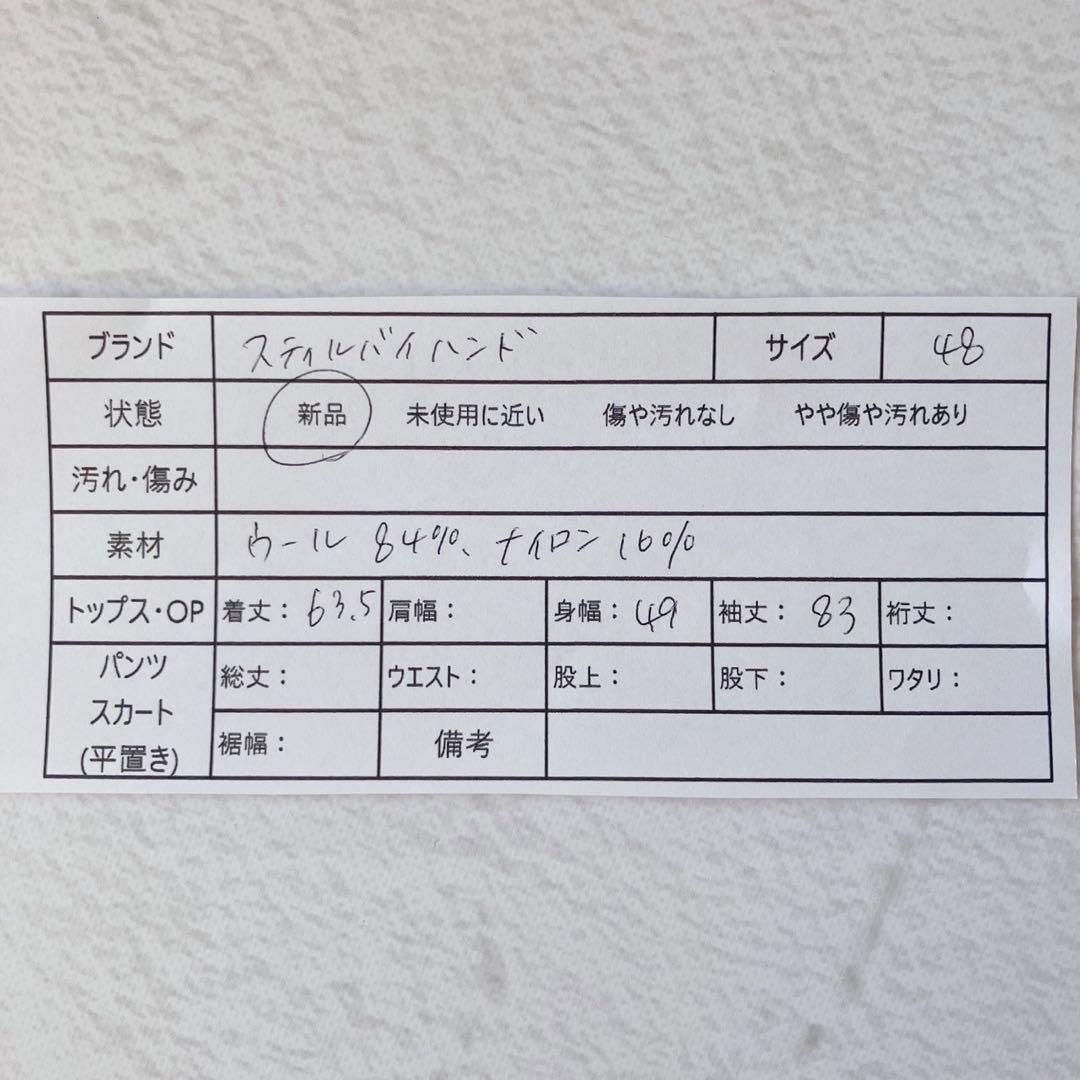 ブランド スティルバイハンド サイズ 48
状態 新品 未使用に近い 傷や汚れなし やや傷や汚れあり
汚れ・傷み
素材 ウール 84%、ナイロン 16%
トップス・OP 着丈：63.5 肩幅： 身幅：49 袖丈：83 裄丈：
パンツ
スカート
(平置き)
総丈： ウエスト： 股上： 股下： ワタリ：
裾幅： 備考